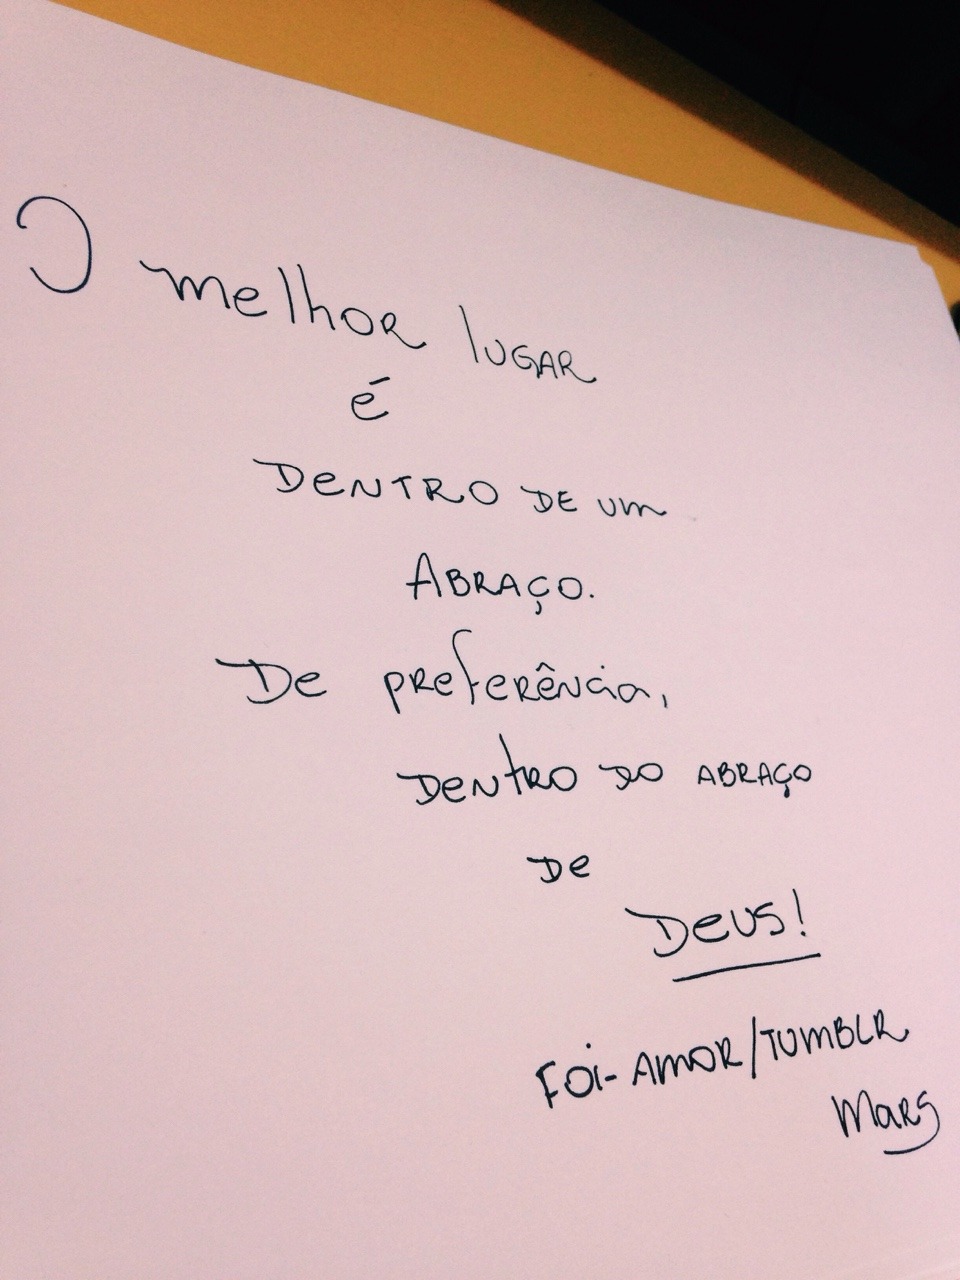 O melhor lugar
é
DeNTRO DE um
ABRAÇO.
De preferência,
DeNtRO DO ABRAÇO
De
Deus!
Foi-AMOR/TUMBLR
Mars